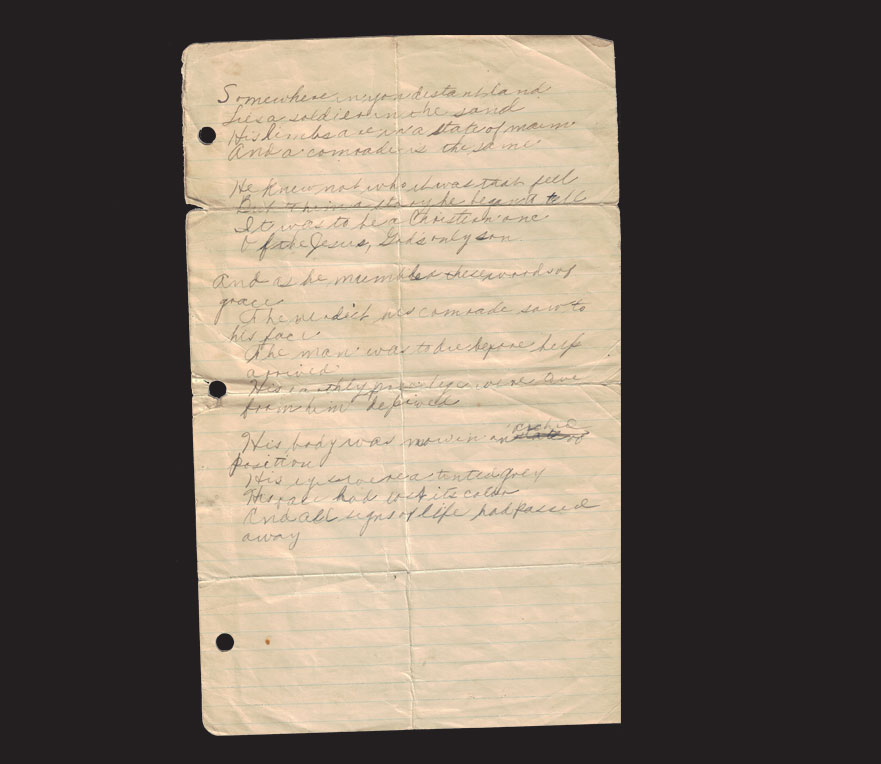 Somewhere in yon distant land
Lies a soldier in the sand
His limbs are in a state of maim
And a comrade is the same.
He knew not who it was that fell
But a story he began to tell
It was to be a Christian one
Of the Jesus, God's only son.
And as he mumbled these words of
grace
The verdict his comrade saw to
his face
The man was to die before help
arrived
His earthly were
from him deprived
His body was now in an
position
His eyes were a tinted grey
The face had lost its color
And all signs of life had passed
away